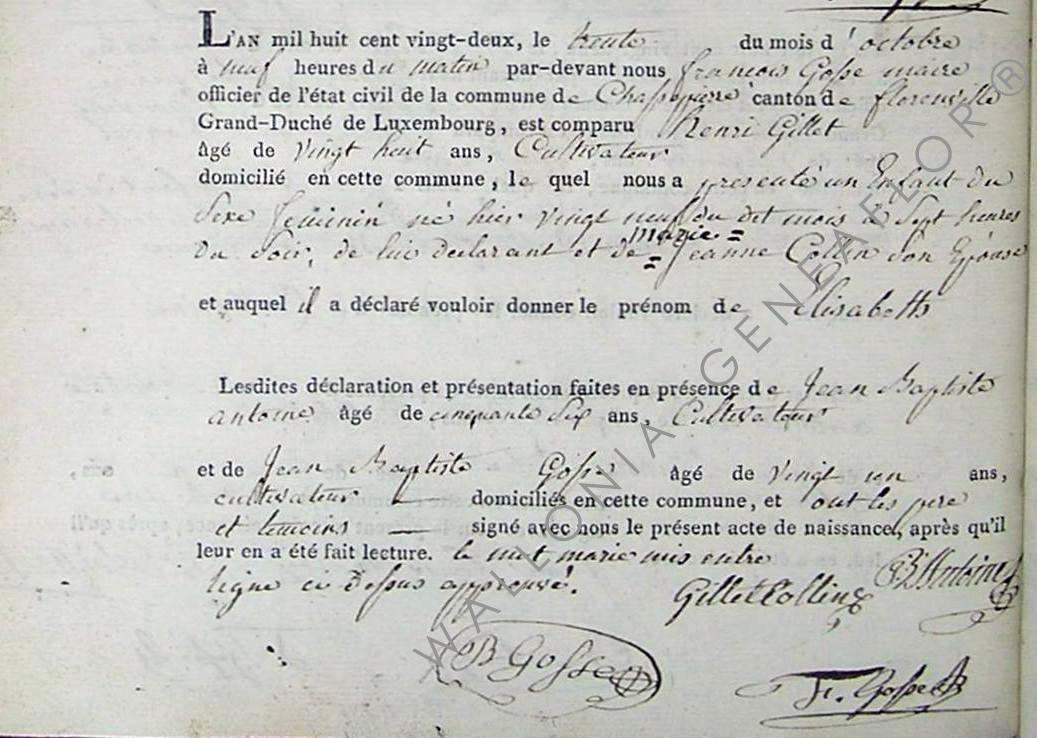 L'AN mil huit cent vingt-deux, le trente du mois d'octobre
à neuf heures du matin par-devant nous francois Gosse maire
officier de l'état civil de la commune de Chassepierre canton de florenville
Grand-Duché de Luxembourg, est comparu henri Gillet
âgé de vingt huit ans, Cultivateur
domicilié en cette commune, le quel nous a presenté un Enfant du
Sexe feminin né hier vingt neuf du dit mois à Sept heures
du Soir, de lui declarant et de = marie = Jeanne Collin Son Epouse
et auquel il a déclaré vouloir donner le prénom de Elisabeth
Lesdites déclaration et présentation faites en présence de Jean Baptiste
antoine âgé de cinquante Six ans, Cultivateur
et de Jean Baptiste Gosse âgé de vingt un ans,
cultivateur — domiciliés en cette commune, et ont les pere
et temoins — signé avec nous le présent acte de naissance, après qu'il
leur en a été fait lecture. le mot marie mis entre
ligne ci Dessus approuvé.
JB Antoine
Gillet Collin
JB Gosse
Fr. Gosse
WALLONIA GENEAFLOR ®